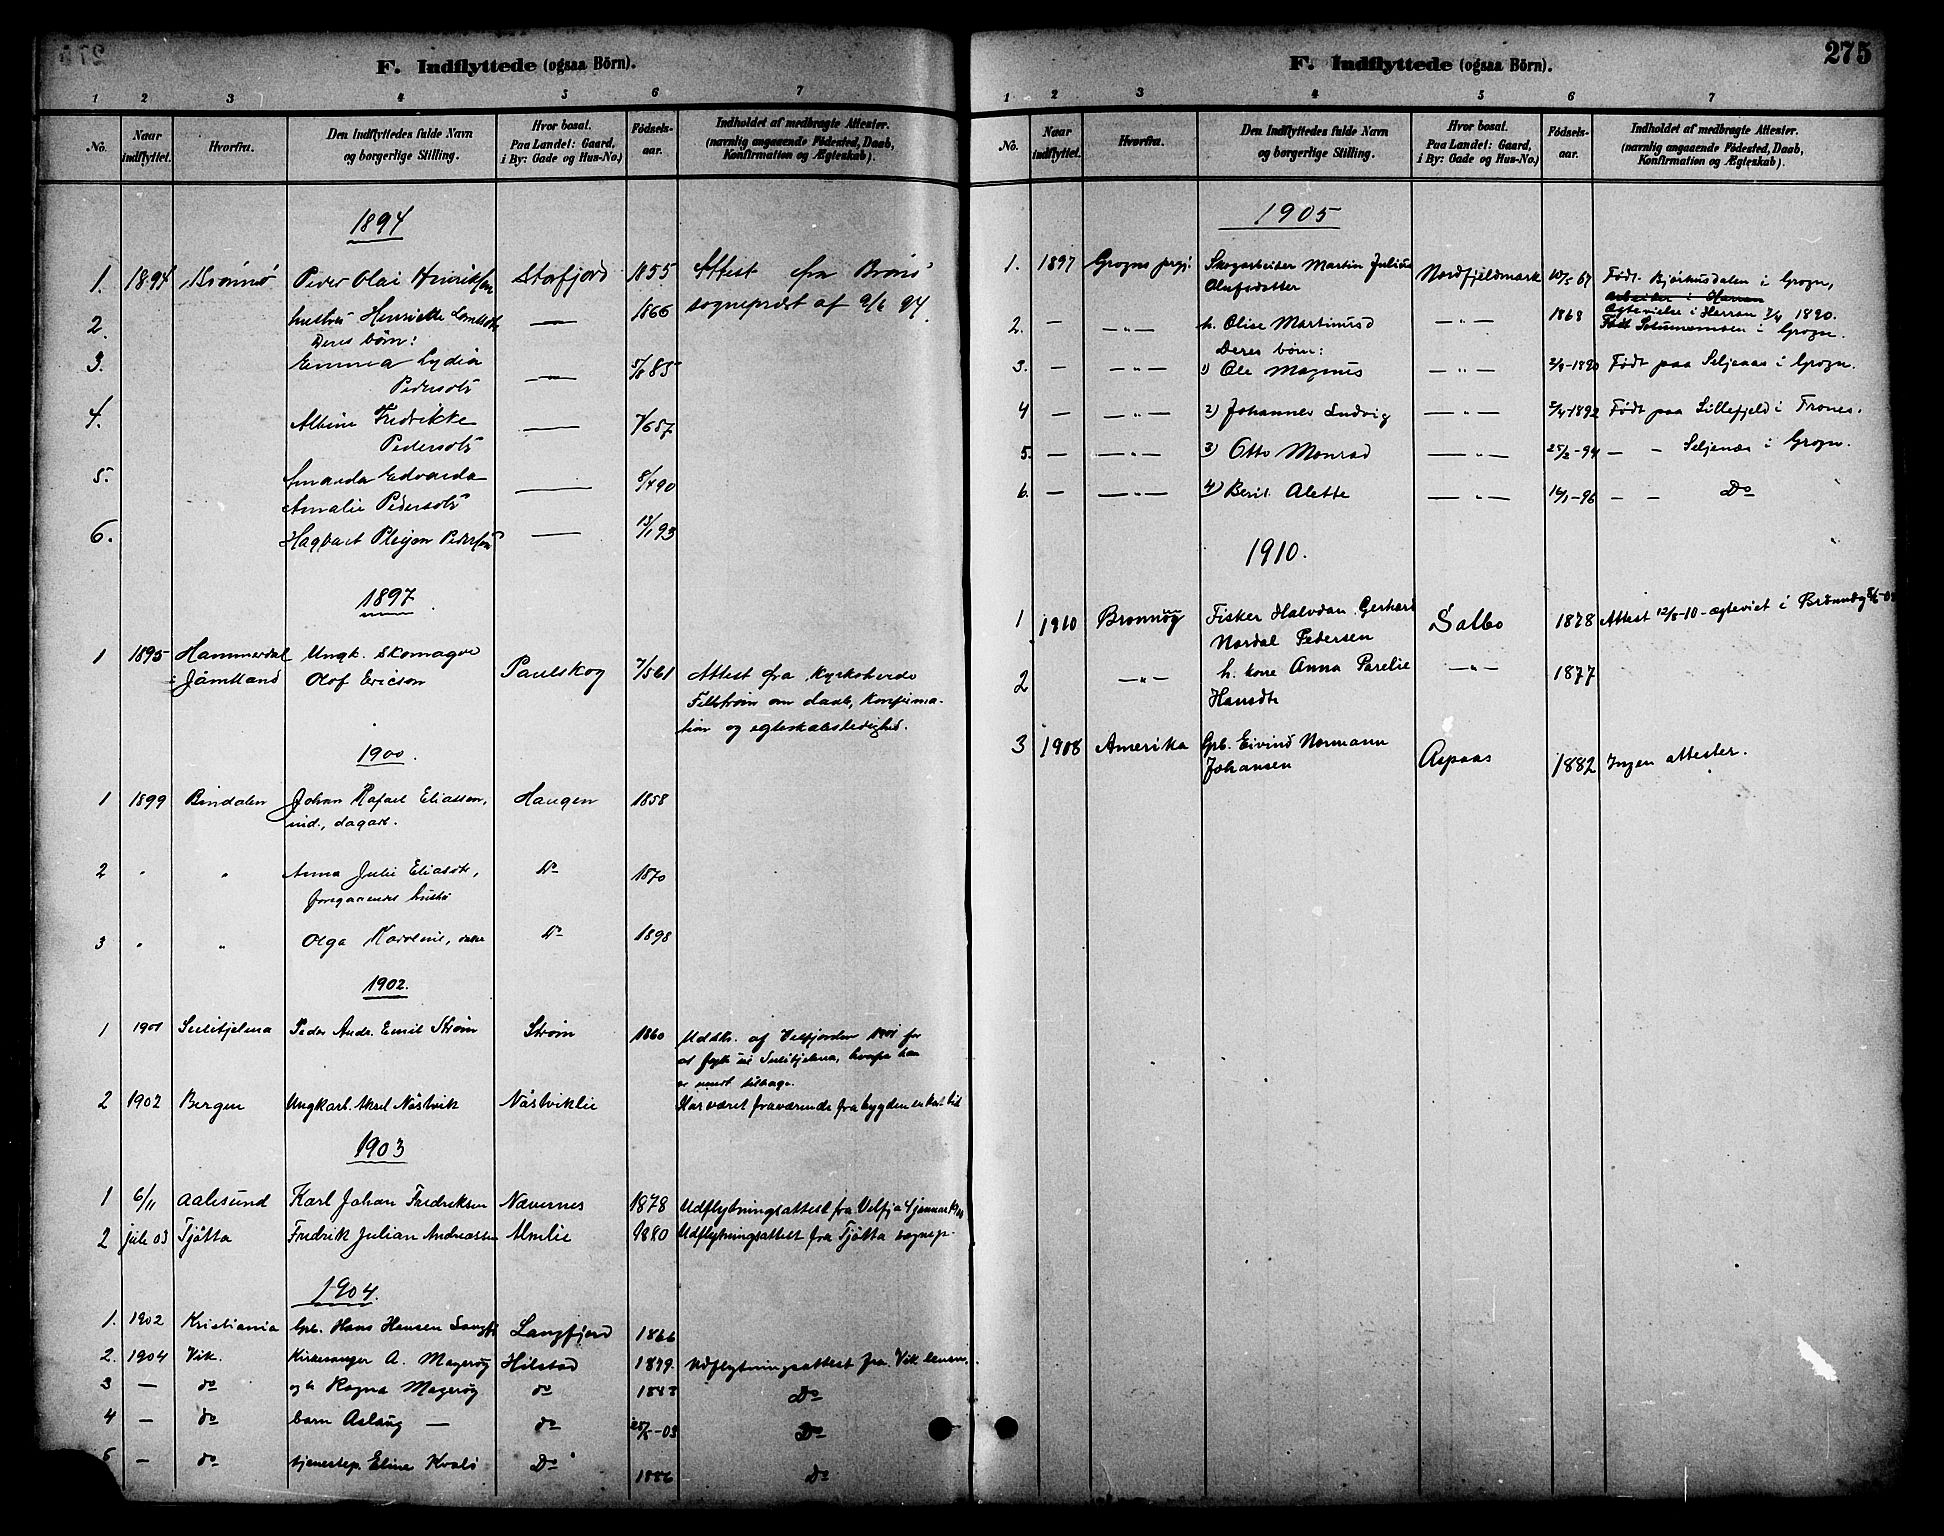 F. Indflyttede (ogsaa Börn).
1 2 3 4 5 6 7
No. Naar indflyttet. Hvorfra. Den Indflyttedes fulde Navn og borgerlige Stilling. Hvor bosat. Paa Landet: Gaard, i By: Gade og Hus-No.) Födsels-aar. Indholdet af medbragte Attester. (navnlig angaaende Födested, Daab, Konfirmation og Ægteskab).
1894
1. 1894 Brönnö Peder Olai Henriksen Storfjord 1855 Attest fra Brönö
2. hustru Henriette — 1866 sognepræst af 9/6 94.
Deres börn:
3. Emma Lydia
Pedersdtr — 5/8 85
4. Albine Fredrikke
Pedersdtr — 87
5. Amanda Edvarda — 8/4 90
Amalie Pedersdtr
6. Hagbart Pedersen — 13/1 93
1897
1 1895 Hammerdal Ungk. Skomager
Jämtland Olof Ericson Paulskog 7/5 61 Attest fra Kyrkoherde
Fellström om daab, konfirma-
tion og egteskabsledighed.
1900
1 1899 Bindalen Johan Rafael Eliassen, Haugen 1858
ind., dagarb.
2 " " Anna Julie Eliasdtr, Do 1870
foregaaendes hustru
3 " " Olga Karoline, Do 1898
1902.
1 1901 Sulitjelma Peder Andr. Emil Ström Ström 1860 Uddtr. af Velfjorden 1901 for
at flytte til Sulitjelma, hvorfra han
er vendt tilbage.
2 1902 Bergen Ungkarl. Aksel Nästvik Nästviklie Har været fraværende fra bygden en kort tid
1903
1 6/11 Aalesund Karl Johan Fredriksen Nævernes 1878 Udflytningsattest fra Velfj. 4 januar
2 jule 03 Tjötta Fredrik Julian Andreassen Almlie 1880 Udflytningsattest fra Tjötta sognep.
1904.
1. 1902 Kristiania Gpb. Hans Hansen Langfj. Langfjord 1866
2. 1904 Vik. Kirkesanger A. Mageröy Hilstad 1879. Udflytningsattest fra Vik
3 — do Ragna Mageröy do 1883 Do
4 — do barn Aslaug — do 25/5-03 Do
5 — do tjenestep. Eline Kvalö Do 1886 Do
F. Indflyttede (ogsaa Börn). 275
1 2 3 4 5 6 7
No. Naar indflyttet. Hvorfra. Den Indflyttedes fulde Navn og borgerlige Stilling. Hvor bosat. Paa Landet: Gaard, i By: Gade og Hus-No.) Födsels-aar. Indholdet af medbragte Attester. (navnlig angaaende Födested, Daab, Konfirmation og Ægteskab).
1905
1. 1897 Grogns prgj. Skogarbeider Martin Julius Nordfjeldmark 10/5 67 Födt. Bjørhusdalen i Grogn,
Olufsdatter arbeider i Harran
Ægtevielse i Herran 1890.
2. — —"— h. Olise Martinusd —"— 1868 Födt i Grogn.
Deres börn:
3. — —"— 1) Ole Magnus —"— 2/8-1890 Födt paa Seljenæs i Grogn.
4 — —"— 2) Johannes Ludvig —"— 2/4-1892 Födt paa Lillefjeld i Trones.
5. — —"— 3) Otto Monrad —"— 25/2-94 — — Seljenæs i Grogn.
6. — —"— 4) Berit Alette —"— 16/1-96 — — Do
1910.
1 1910 Brønnøy Fisker Halvdan Gerhard Salbo 1878 Attest 12/8-10 - ægteviet i Brönnöy
Nordal Pedersen
2 —"— h. kone Anna Parelie —"— 1877
Hansdtr
3 1908 Amerika Gpb. Eivind Normann Aspaas 1882 Ingen attester.
Johansen